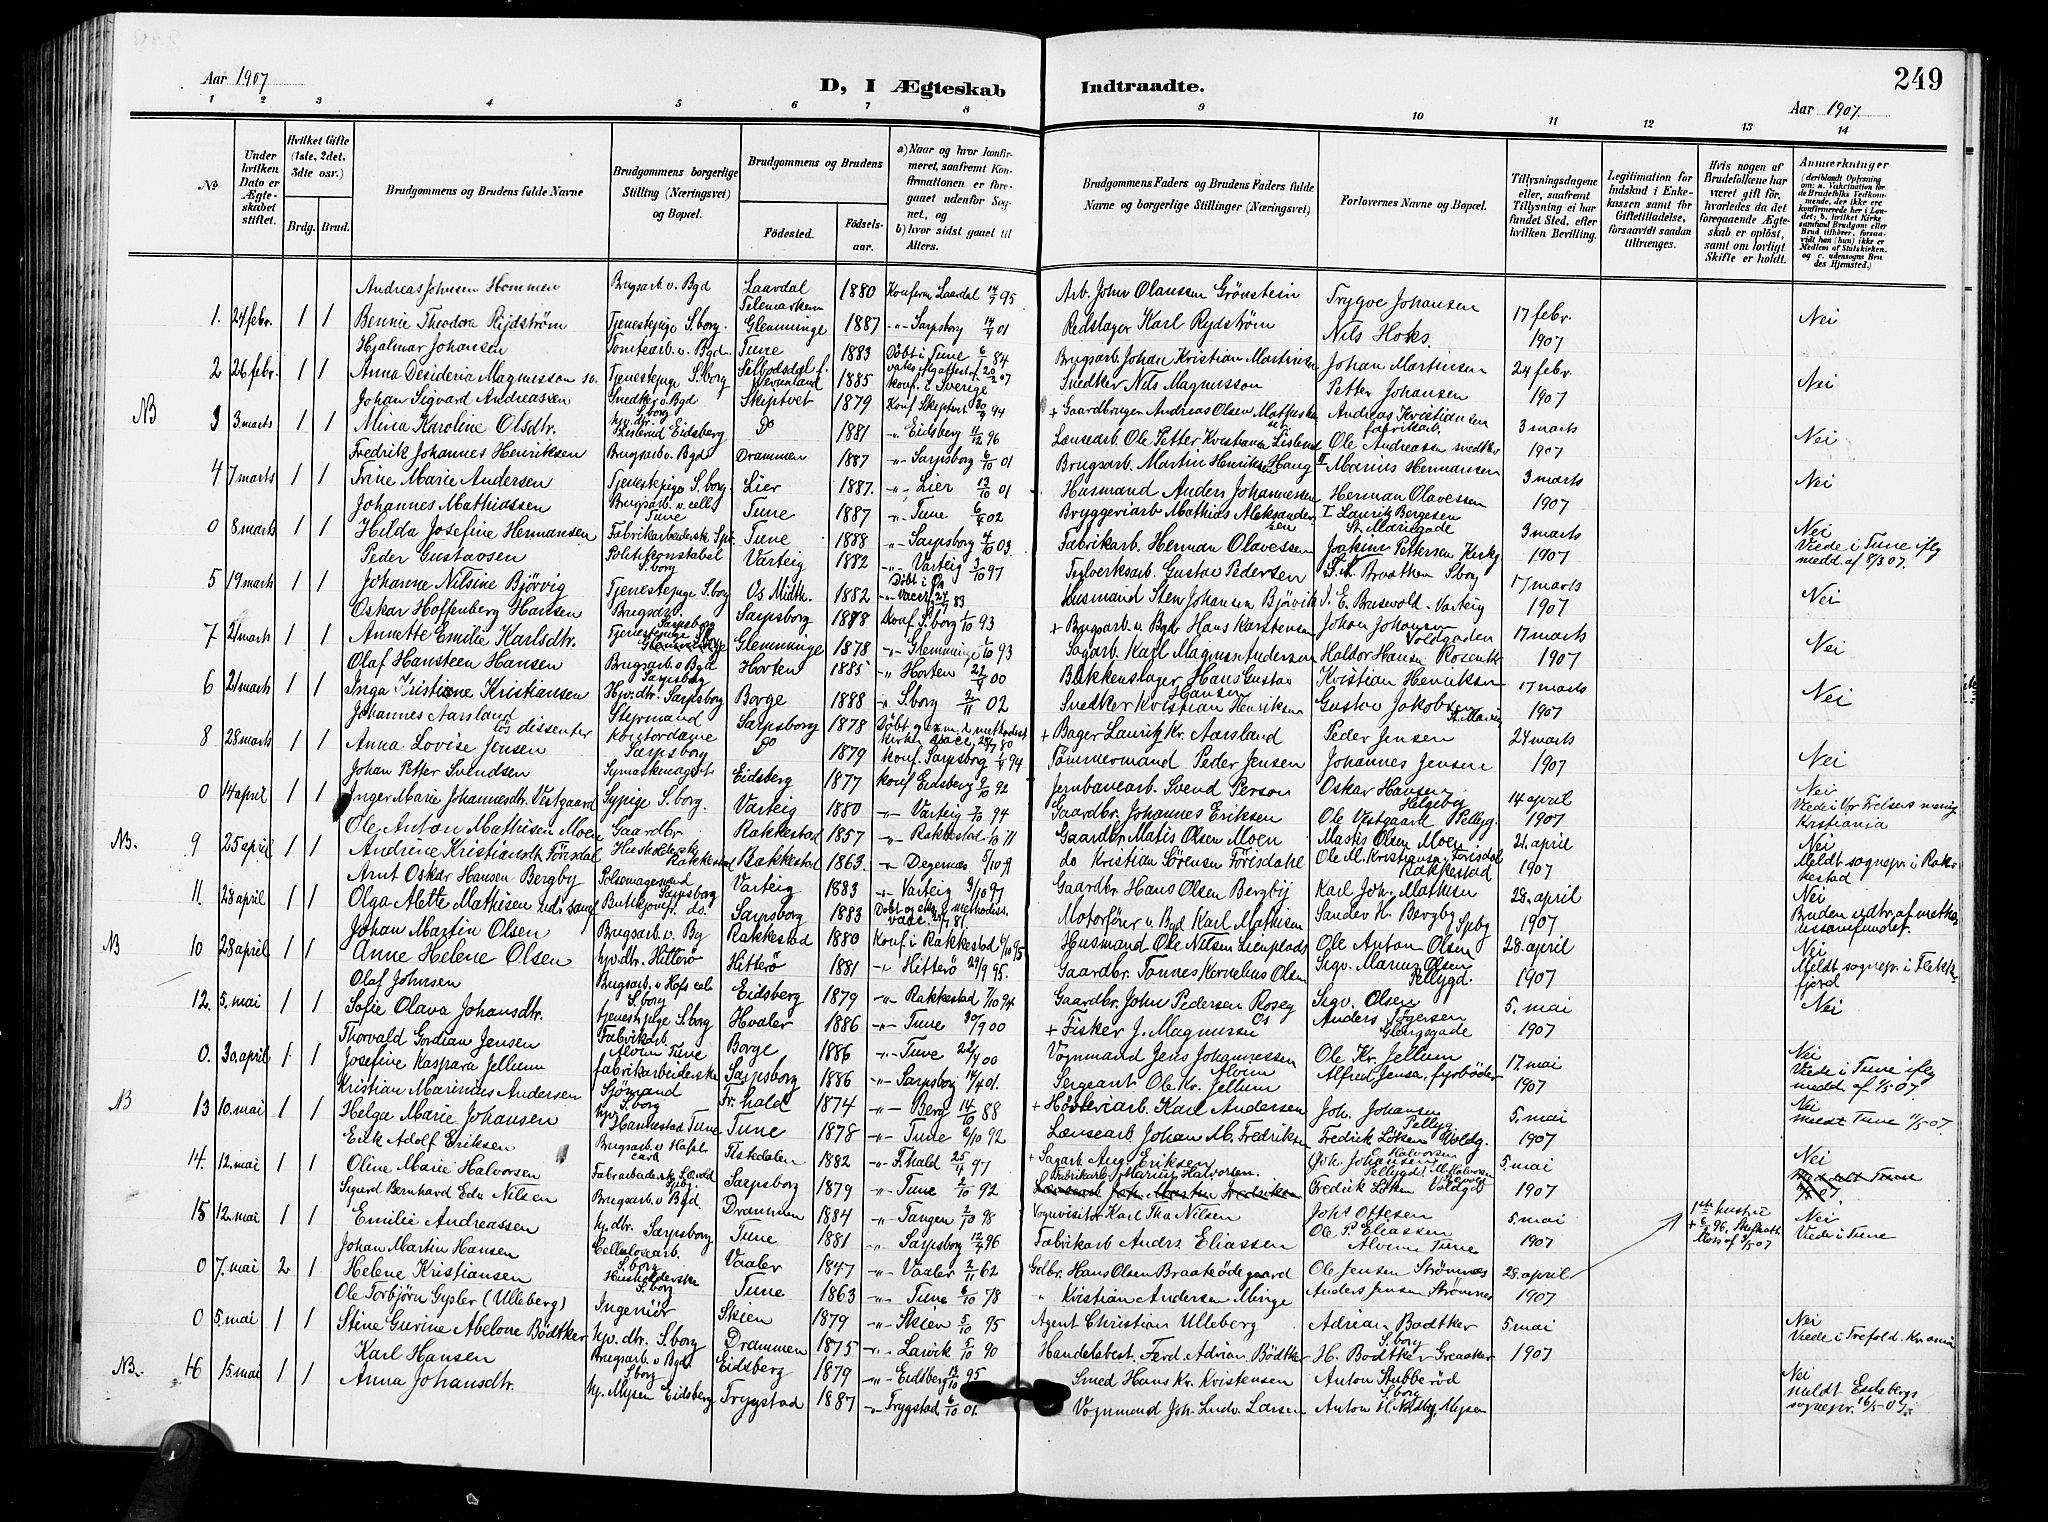 249
Aar 1907
D, I Ægteskab
Indtraadte.
Aar 1907.
1 2 3 4 5 6 7 8 9 10 11 12 13 14
№
Under hvilken Dato er Ægteskabet stiftet.
Hvilket Gifte (1ste, 2det, 3dte osv.)
Brdg. Brud.
Brudgommens og Brudens fulde Navne
Brudgommens borgerlige Stilling (Næringsvei) og Bopæl.
Brudgommens og Brudens
Fødested.
Fødselsaar.
a) Naar og hvor konfirmeret, saafremt Konfirmationen er foregaaet udenfor Sognet, og
b) hvor sidst gaaet til Alters.
Brudgommens Faders og Brudens Faders fulde Navne og borgerlige Stillinger (Næringsvei)
Forlovernes Navne og Bopæl.
Tillysningsdagene eller, saafremt Tillysning ei har fundet Sted, efter hvilken Bevilling.
Legitimation for Indskud i Enkekassen samt for Giftetilladelse, forsaavidt saadan tiltrænges.
Hvis nogen af Brudefolkene har været gift før, hvorledes da det foregaaende Ægteskab er opløst, samt om lovligt Skifte er holdt.
Anmærkninger
(deriblandt Oplysning om: a. Vakcination for de Brudefolks Vedkommende, der ikke ere konfirmerede her i Landet; b. hvilket Kirkesamfund Brudgom eller Brud tilhører, forsaavidt han (hun) ikke er Medlem af Statskirken, og c. udensogns Brudes Hjemsted.)
Andreas Johnsen Hommen Brugsarb. v. Bgd Laardal Telemarken 1880 Konferm. Laardal 14/7 95 Arb. John Olanssen Grönstein Trygve Johansen 17 febr.
1. 24 febr. 1 1 Bennie Theodora Rydström Tjenestepige S.borg. Glemminge 1887 -"- Sarpsborg 14/4 01 Rebslager Karl Rydström Nils Hoks. 1907 Nei
Hjalmar Johansen Tomtearb. v. Bgd Tune 1883 Döbt i Tune 6/1 84 Brugsarb. Johan Kristian Martinsen Johan Martinsen 24 febr.
2 26 febr. 1 1 Anna Desideria Magnusson Tjenestepige S.borg 1885 konf. i Sverige Snedker Nils Magnusson Petter Johansen 1907 Nei
NB 3 3 marts 1 1 Johan Sigvard Andreassen Snedker v. Bgd S.borg Skiptvet 1879 Konf Skiptvet 94 + Gaardbruger Andreas Olsen Andreas Kristiansen fabrikarb. 3 marts
Mina Karoline Olsdtr. Lislerud Eidsberg Do 1881 -"- Eidsberg 11/12 96 Lænsearb. Ole Petter Kristiansen Lislerud Ole Andreassen snedker 1907 Nei
Fredrik Johannes Henriksen Brugsarb v. Bgd Drammen 1887 -"- Sarpsborg 6/10 01 Brugsarb. Martin Henriksen Haug Marius Hermansen 3 marts
4 7 marts 1 1 Trine Marie Andersen Tjenestepige S.borg. Lier 1887. -"- Lier 13/10 01 Husmand Anders Johannessen Herman Olavessen 1907 Nei
Johannes Mathiassen Brugsarb. v. cell Tune Tune 1887 -"- Tune 6/4 02 Bryggeriarb Mathias Aleksandersen Lauritz Bergesen St. Mariegade 3 marts
0 8 marts 1 1 Hilda Josefine Hermansen Fabrikarbeiderske Tune 1888 -"- Sarpsborg 4/10 03. Fabrikarb. Herman Olavessen Joakim Pettersen 1907 Nei Viede i Tune iflg medd. af 8/3 07.
Peder Gustavsen Politikonstabel S.borg Varteig 1882 -"- Varteig 3/10 97 Tylverksarb. Gustav Pedersen Braathen S.borg 17 marts
5 19 marts 1 1 Johanne Nilsine Björvig Tjenestepige S.borg Os Midth. 1882 Döbt i Os Vacc. 83 Husmand Sten Johansen Björvik J. E. Brusevold. Varteig 1907 Nei
Oskar Hoffenberg Hansen Brugsarb. Sarpsborg Sarpsborg 1878 Konf S.borg 1/10 93 + Brugsarb. v. Bgd Hans Karstensen Johan Johansen Voldgaden 17 marts
7 21 marts 1 1 Annette Emilie Karlsdtr. Tjenestepige Glemminge 1878 -"- Glemminge 6/10 93 Sagarb. Karl Magnus Andersen Haldor Hansen 1907 Nei
Olaf Hansteen Hansen Brugsarb. v Bgd Sarpsborg Horten 1885 " Horten 22/4 00 Blokkenslager Hans Gustav Hansen Kristian Henriksen 17 marts
6 21 marts 1 1 Inga Kristiane Kristiansen Hjv. dtr. Sarpsborg Borge 1888 " S.borg 2/11 02 Snedker Kristian Henriksen Gustav Jakobsen 1907 Nei
Johannes Aarsland lös dissenter Styrmand Sarpsborg 1878 Döbt og + Bager Lauritz Kr. Aarsland Peder Jensen 24 marts
8 28 marts 1 1 Anna Lovise Jensen Kontordame Sarpsborg Do 1879 Konf. Sarpsborg 94 Tömmermand Peder Jensen Johannes Jensen 1907 Nei
Johan Petter Svendsen Eidsberg 1877 Konf Eidsberg 9/10 92 Jernbanearb. Svend Person Oskar Hansen Helgeby 14 april
0 14 april 1 1 Inger Marie Johannesdtr. Vestgaard Sypige S.borg. Varteig 1880 -"- Varteig 7/10 94 Gaardbr. Johannes Eriksen Ole Vestgaard Pellyg. 1907 Nei Viede i Vor Frelsers menig Kristiania
Ole Anton Mathisen Moen Gaardbr. Rakkestad 1857 -"- Rakkestad 1/10 71 Gaardbr. Matis Olsen Moen Mathis Olsen Moen 21. april
NB. 9 25 april 1 1 Andrine Kristiansdtr Förisdal Husholderske Rakkestad Rakkestad 1863. " Degernæs do Kristian Sörensen Förisdahl Ole M. Kristiansen Förisdal Rakkestad 1907 Nei Meldt sognepr. i Rakkestad
Arnt Oskar Hansen Bergby Pölsemagersvend Sarpsborg Varteig 1883 " Varteig 3/10 97 Gaardbr Hans Olsen Bergby Karl Joh. Mathisen 28. april
11. 28 april 1 1 Olga Alette Mathisen Butikjomf. do. Sarpsborg 1883 Döbt og methodist. vacc. 81. Motorförer v. Bgd Karl Mathisen Sander H. Bergby 1907 Nei Bruden udtr. af methodissamfundet.
Johan Martin Olsen Brugsarb. v. Bg Rakkestad 1880 Konf i Rakkestad 6/10 95 Husmand Ole Nilsen Ole Anton Olsen 28. april
NB 10 28 april 1 1 Anne Helene Olsen hjv. dtr. Hitterö Hitterö 1881 -"- Hitterö 29/9 95. Gaardbr. Tönnes Kornelius Olsen Sigv. Marius Olsen Pellygd. 1907 Nei Meldt sognepr. i Flekkefjord
Olaf Johnsen Brugsarb. v Hafs cel. S.borg Eidsberg 1879 -"- Rakkestad 7/10 94 Gaardbr. John Pedersen Roseg Sigv. Olsen 5. mai
12. 5. mai 1 1 Sofie Olava Johansdtr. tjenestpige S.borg Hvaler 1886 -"- Tune 30/9 00 + Fisker J. Magnussen Anders Jörgensen Glengsgade 1907 Nei
Thorvald Gordian Jensen Fabrikarb. Alvim Tune Borge 1886 -"- Tune 22/4 00 Vognmand Jens Johannessen Alvim Ole Kr. Jellum 17. mai
0. 30. april 1. 1 Josefine Kaspara Jellum fabrikarbeiderske Sarpsborg 1886 -"- Sarpsborg 14/4 01. Sergeant Ole Kr. Jellum Alfred Jensen, fyrböder 1907 Nei Viede i Tune iflg medd. af 1/5 07.
Kristian Marinius Andersen Sjömand S.borg Fr. hald 1874 -"- Berg 14/10 88 + Höveriarb. Karl Andersen Joh. Johansen Pellyg. 5. mai
NB 13 10. mai 1 1 Helga Marie Johansen hjv. Hannestad Tune Tune 1878 -"- Tune 2/10 92 Lænsearb. Johan M. Fredriksen Fredrik Löken Voldg. 1907 Nei meldt Tune 11/5 07.
Erik Adolf Eriksen Brugsarb. v Hafsl. Tistedalen 1882 -"- F.hald 25/4 97 + Sagarb. Aug. Eriksen Joh. Johansen Pellygd. 5. mai
14. 12. mai 1 1 Oline Marie Halvorsen Fabrarbeiderske Sarpsborg 1879 -"- Tune 2/10 92 Fabrikarb. Marius Halvorsen. Fredrik Löken Voldgd 1907 Nei
Sigurd Bernhard Edv. Nilsen Brugsarb. v. Bgd. Drammen 1884 -"- Tangen 2/10 98 Vognvisitör Karl Nilsen Johs Ottesen 5. mai
15 12. mai 1 1 Emilie Andreassen hj. dtr. Sarpsborg Tune 1881 -"- Sarpsborg 12/4 96 Fabrikarb Andrs. Eliassen Ole P. Eliassen Alvim Tune 1907 Nei Viede i Tune
Johan Martin Hansen Cellulosearb. S.borg Vaaler 1847 -"- Vaaler 2/11 62 Gdbr. Hans Olsen Braatödegaard Ole Jensen Strömnæs 28. april 1ste hustru + 6/5 96. Skifteatt. Moss af 3/5 07
0 7. mai 2 1 Helene Kristiansen Husholderske S.borg Tune 1863 -"- Tune 6/10 78 " Kristian Andersen Minge Anders Jensen Strömnes 1907
Ole Torbjörn Gysler (Ulleberg) Ingeniör Skien 1879 -"- Skien 5/10 95 Agent Christian Ulleberg Adrian Bödtker S.borg 5. mai
0 5. mai 1 1 Stine Gurine Abelone Bödtker hjv. dtr. S.borg Drammen 1875 -"- Larvik 5/10 90 Handelsbest. Ferd. Adrian Bödtker H. Bödtker Greaaker 1907 Nei Viede i Trefold. Kr.ania
Karl Hansen Brugsarb. v Bgd S.borg Eidsberg 1879 -"- Eidsberg 13/10 95 Smed Hans Kr. Kristensen Anton Stubberöd S.borg
NB. 16 15. mai 1 1 Anna Johansdtr. hj. Mysen Eidsberg Trygstad 1887 -"- Trygstad 6/10 01. Vognmand Joh. Ludv. Larsen Anton H. Mysen Nei meldt Eidsbergs sognepr. 16/5 07.